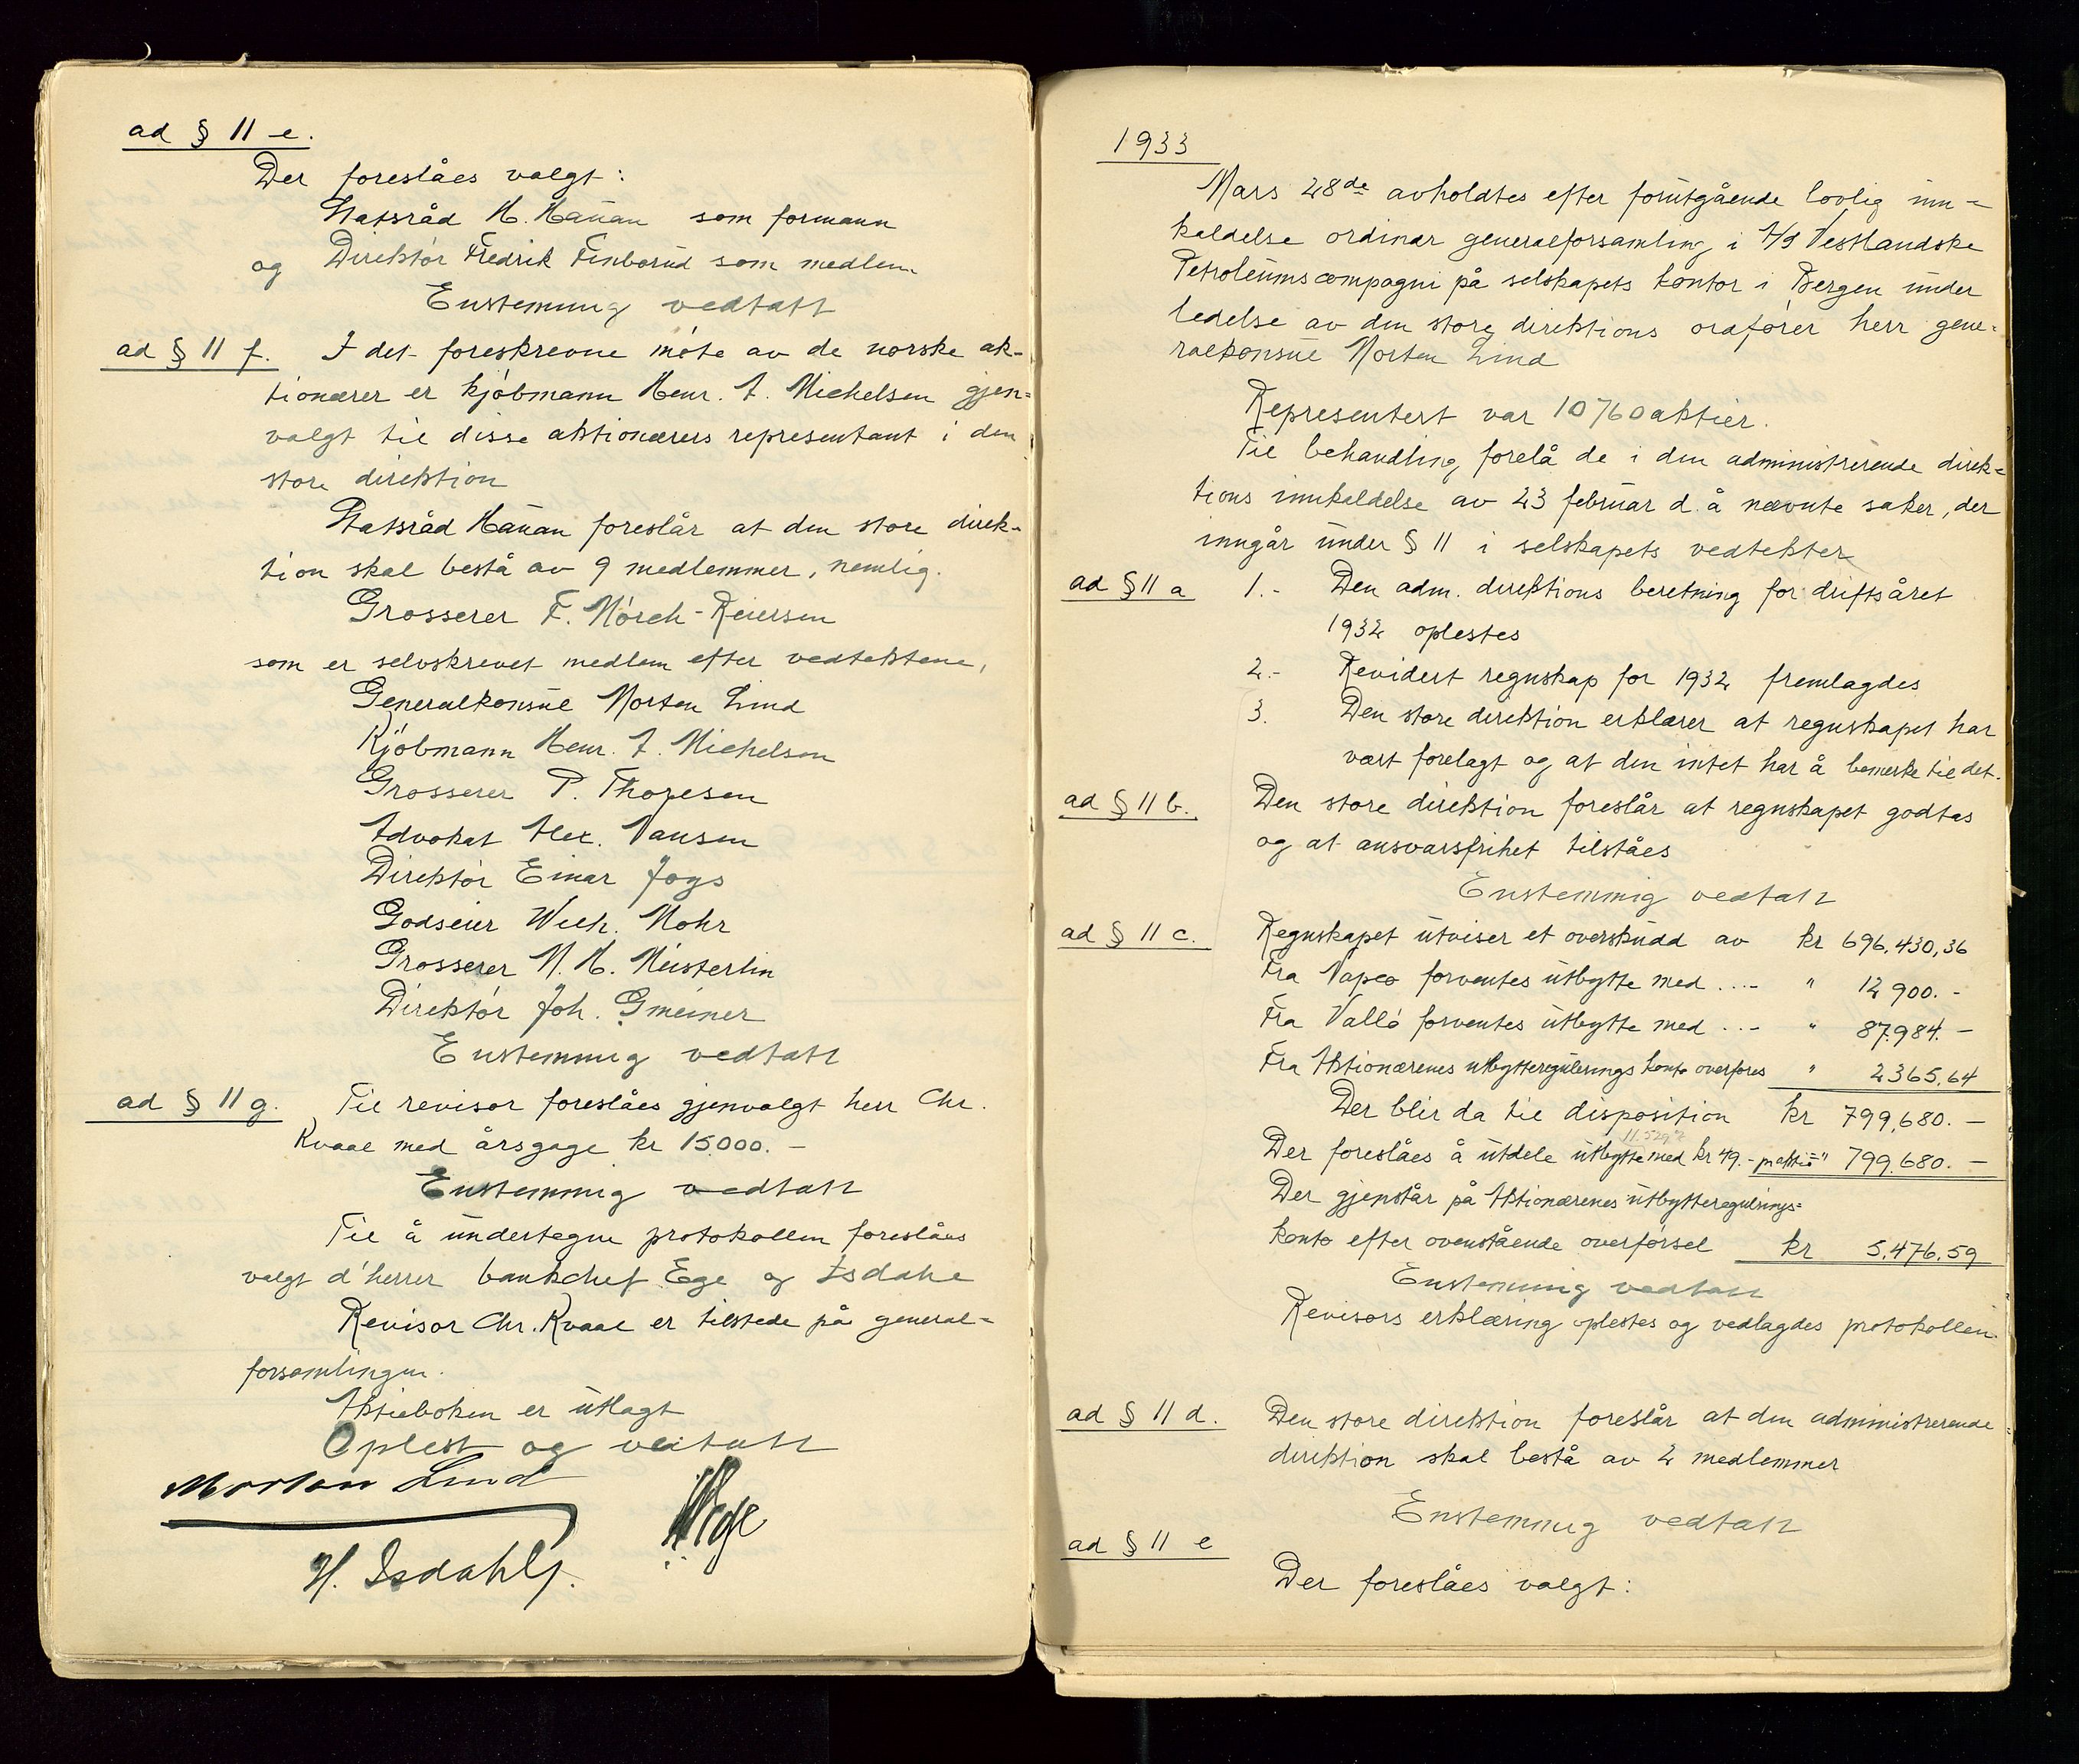 ad § 11 e.
Der foreslåes valgt:
Statsråd K. Hauan som formann
og Direktør Fredrik Finborud som medlem
Enstemmig vedtatt
ad § 11 f. I det foreskrevne møte av de norske ak-
tionærer er kjøbmann Henr. A. Michelsen gjen-
valgt til disse aktionærers representant i den
store direktion
Statsråd Hauan foreslår at den store direk-
tion skal bestå av 9 medlemmer, nemlig.
Grosserer F. Mørch-Reiersen
som er selvskrevet medlem efter vedtektene,
Generalkonsul Morten Lind
Kjøbmann Henr. A. Michelsen
Grosserer P. Thoresen
Advokat Alex. Nansen
Direktør Einar Joys
Godseier Wilh. Mohr
Grosserer N. H. Meisterlin
Direktør Joh. Gmeiner
Enstemmig vedtatt
ad § 11 g. Til revisor foreslåes gjenvalgt herr Chr.
Kvaal med årsgage kr 15.000.-
Enstemmig vedtatt
Til å undertegne protokollen foreslåes
valgt d'herrer bankchef Ege og Isdahl
Revisor Chr. Kvaal er tilstede på general-
forsamlingen.
Aktieboken er utlagt
Oplest og vedtatt
Morten Lind
Ege
H. Isdahl
1933
Mars 28de avholdtes efter forutgående lovlig inn-
kaldelse ordinær generalforsamling i A/S Vestlandske
Petroleumscompagni på selskapets kontor i Bergen under
ledelse av den store direktions ordfører herr gene-
ralkonsul Morten Lind
Representert var 10760 aktier.
Til behandling forelå de i den administrerende direk-
tions innkaldelse av 23 februar d. å nævnte saker, der
inngår under § 11 i selskapets vedtekter
ad § 11 a 1.- Den adm. direktions beretning for driftsåret
1932 oplestes
2.- Revidert regnskap for 1932 fremlagdes
3. Den store direktion erklærer at regnskapet har
vært forelagt og at den intet har å bemerke til det.
ad § 11 b. Den store direktion foreslår at regnskapet godtas
og at ansvarsfrihet tilståes
Enstemmig vedtatt
ad § 11 c. Regnskapet utviser et overskudd av kr 696.430,36
Fra Vapco forventes utbytte med ...- " 12 900.-
Fra Vallø forventes utbytte med ...- " 87.984.-
Fra Aktionærenes utbyttereguleringskonto overføres " 2365,64
Der blir da til disposition kr 799,680.-
Der foreslåes å utdele utbytte med kr 49.- pr aktie " 799.680.-
Der gjenstår på Aktionærenes utbyttereguleringskonto=
konto efter ovenstående overførsel kr 5.476.59
Enstemmig vedtatt
Revisors erklæring oplestes og vedlagdes protokollen.
ad § 11 d. Den store direktion foreslår at den administrerende
direktion skal bestå av 2 medlemmer
Enstemmig vedtatt
ad § 11 e
Der foreslåes valgt: